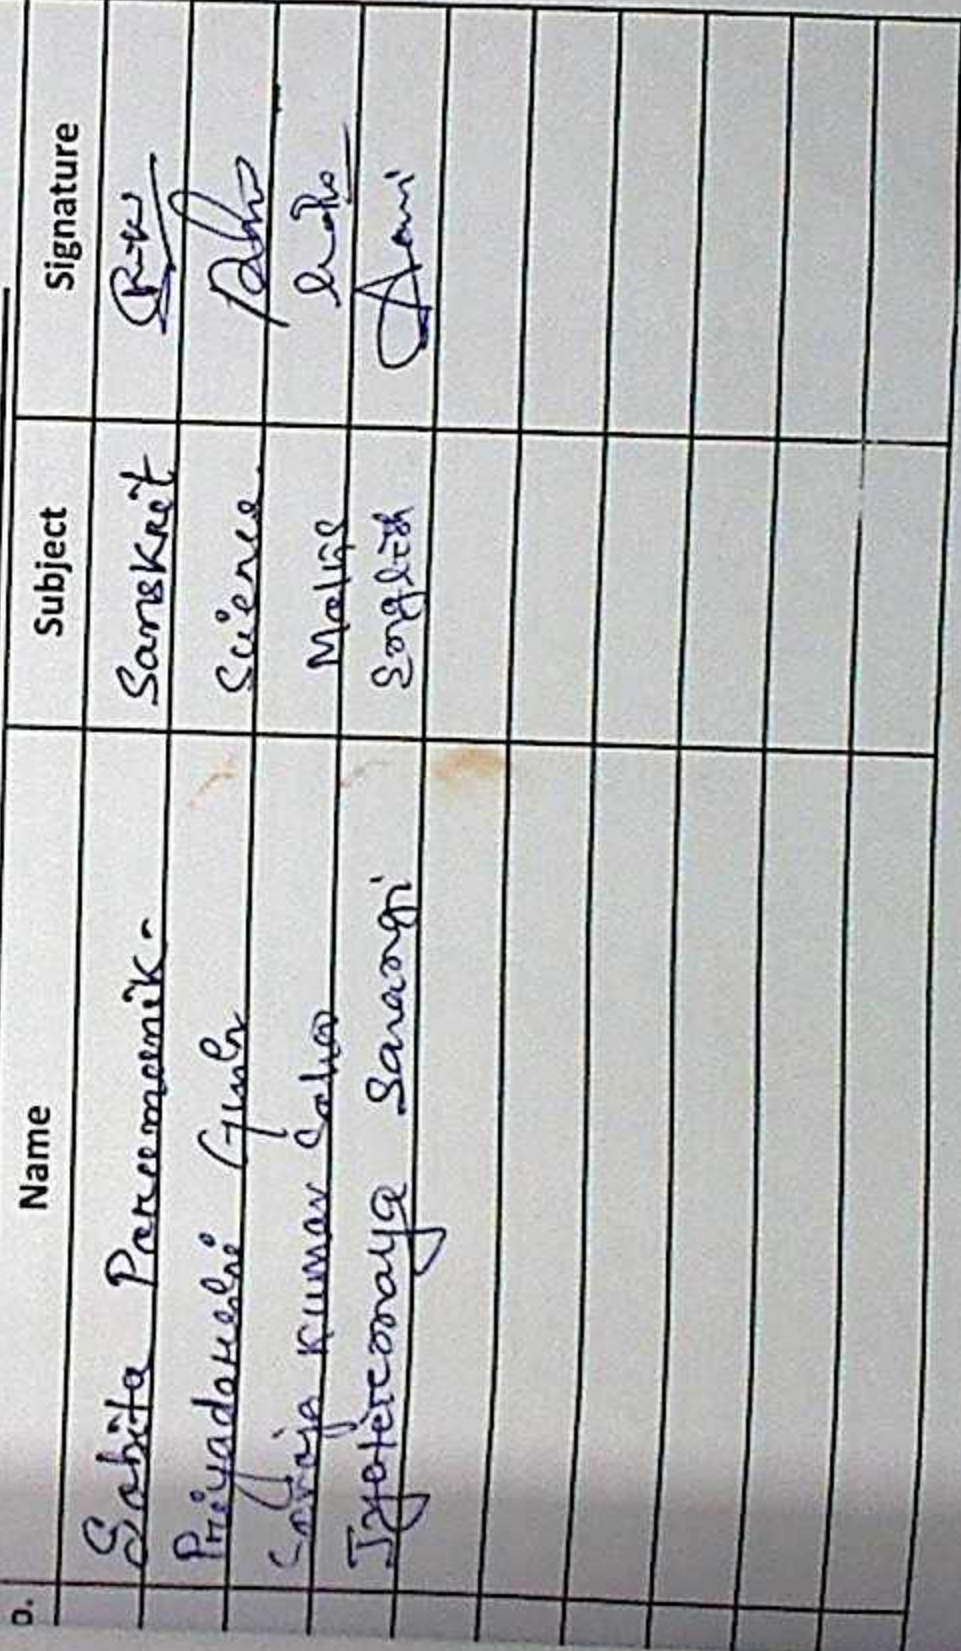 Name Subject Signature
Sabita Paramanik - Sanskrit
Priyadarshi Science.
Kumar Sahoo Maths Sahoo
Jyotirmaya Sarangi English